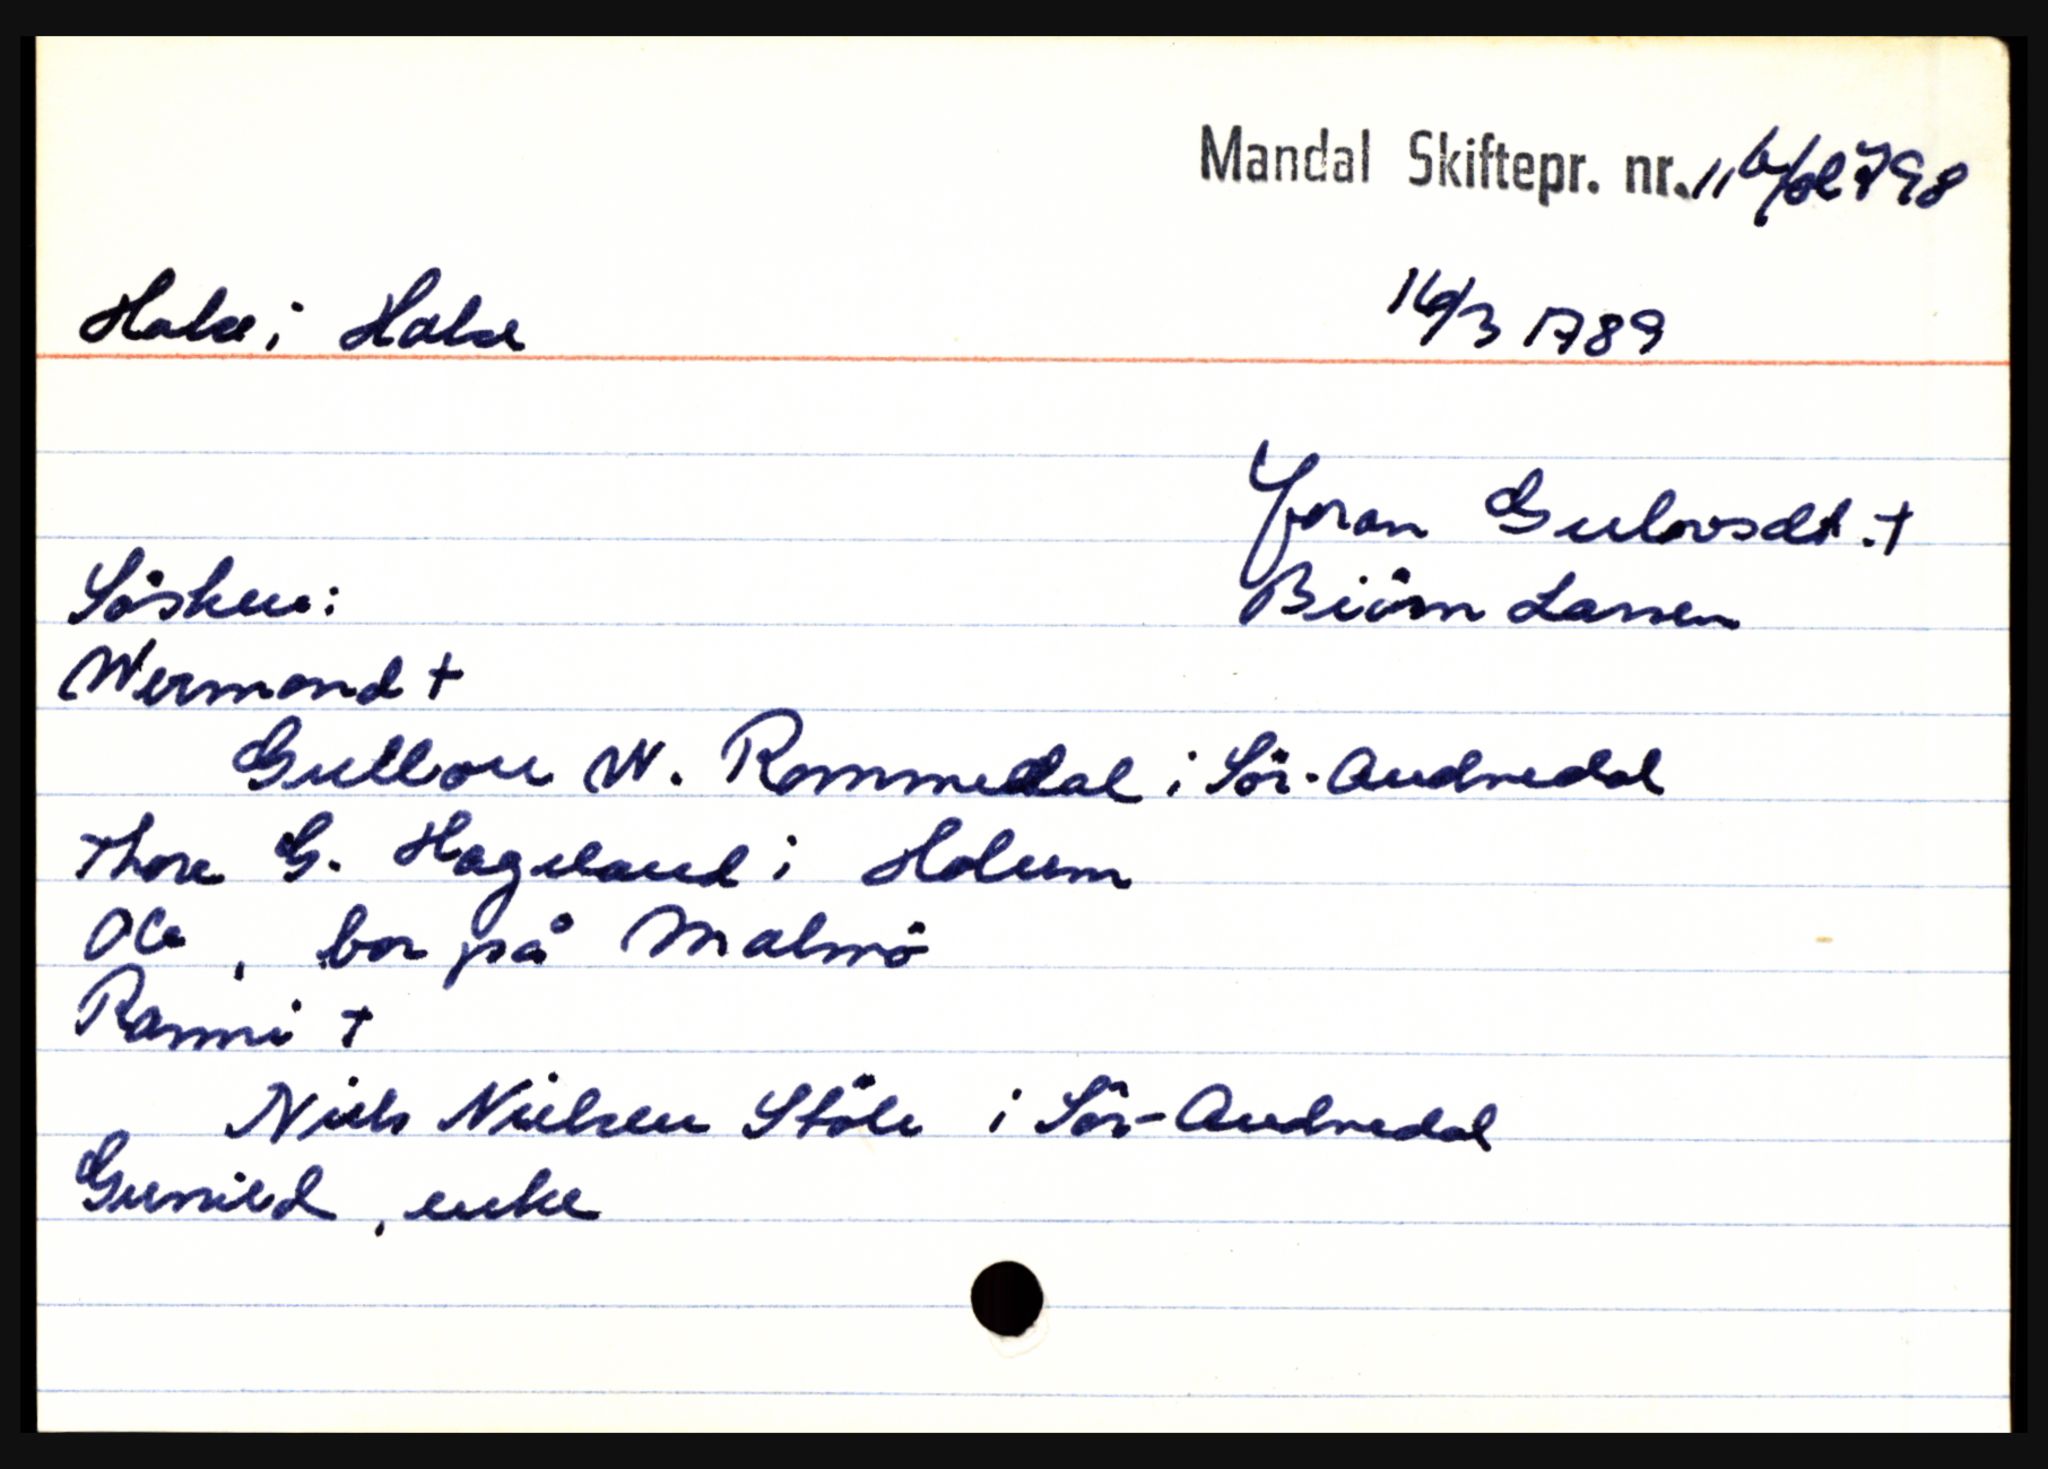 Mandal Skiftepr. nr. 11 b/fol 798
Halse i Halse 16/3 1789
Joran Gulovsdt. +
Sösken: Biörn Larsen
Wermond +
Gullov W. Rommedal i Sör-Audnedal
Thore G. Hageland i Holum
Ole, bor på Malmö
Ranni +
Niels Nielsen Stöle i Sör-Audnedal
Gunild, enke